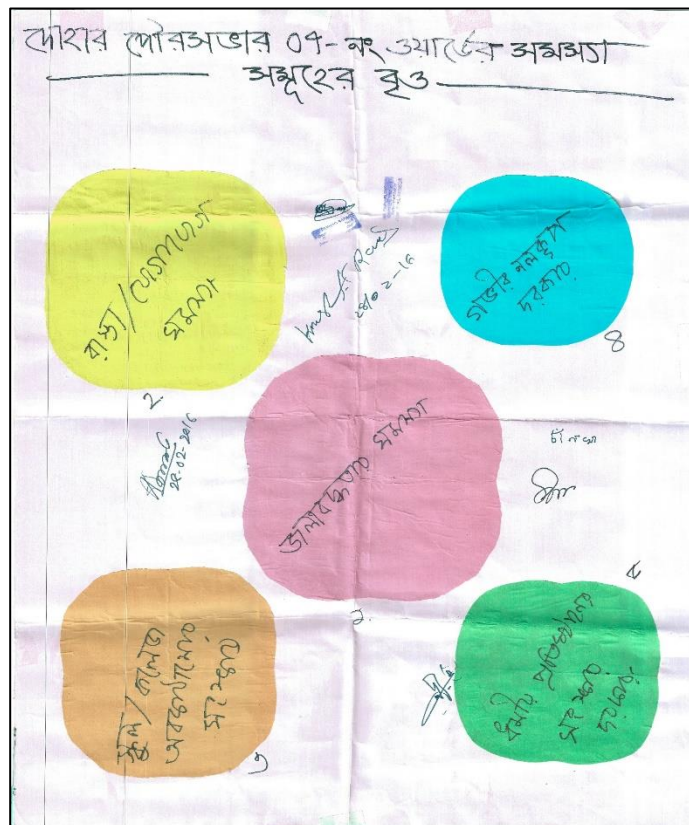 দোহার পৌরসভার 04-নং ওয়ার্ডের সমস্যা
সমূহের বৃত্ত
রাস্তা/যোগাযোগ
সমস্যা
২
গভীর নলকূপ
দরকার
৪
২৪-০২-১৬
জলাবদ্ধতার সমস্যা
১
স্কুল/কলেজ
অবকাঠামোর
সংস্কার
৩
ধর্মীয় প্রতিষ্ঠানের
সংস্কার
দরকার
৫